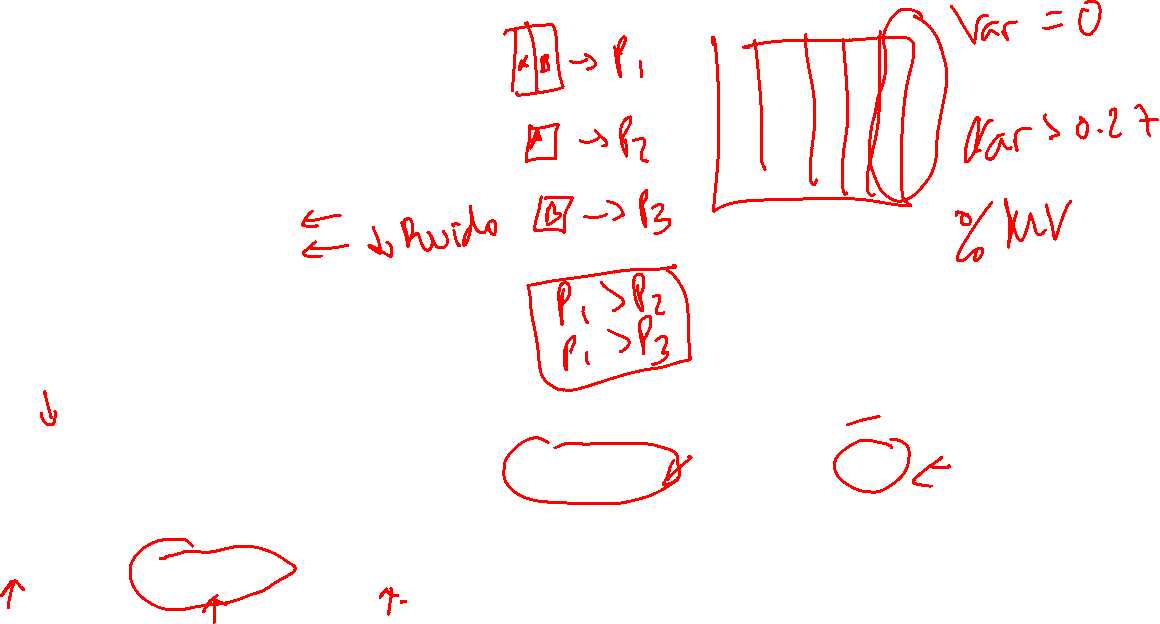 A B → P1
A → P2
B → P3
↓ Ruido
P1 > P2
P1 > P3
Var = 0
Var > 0.27
% MV